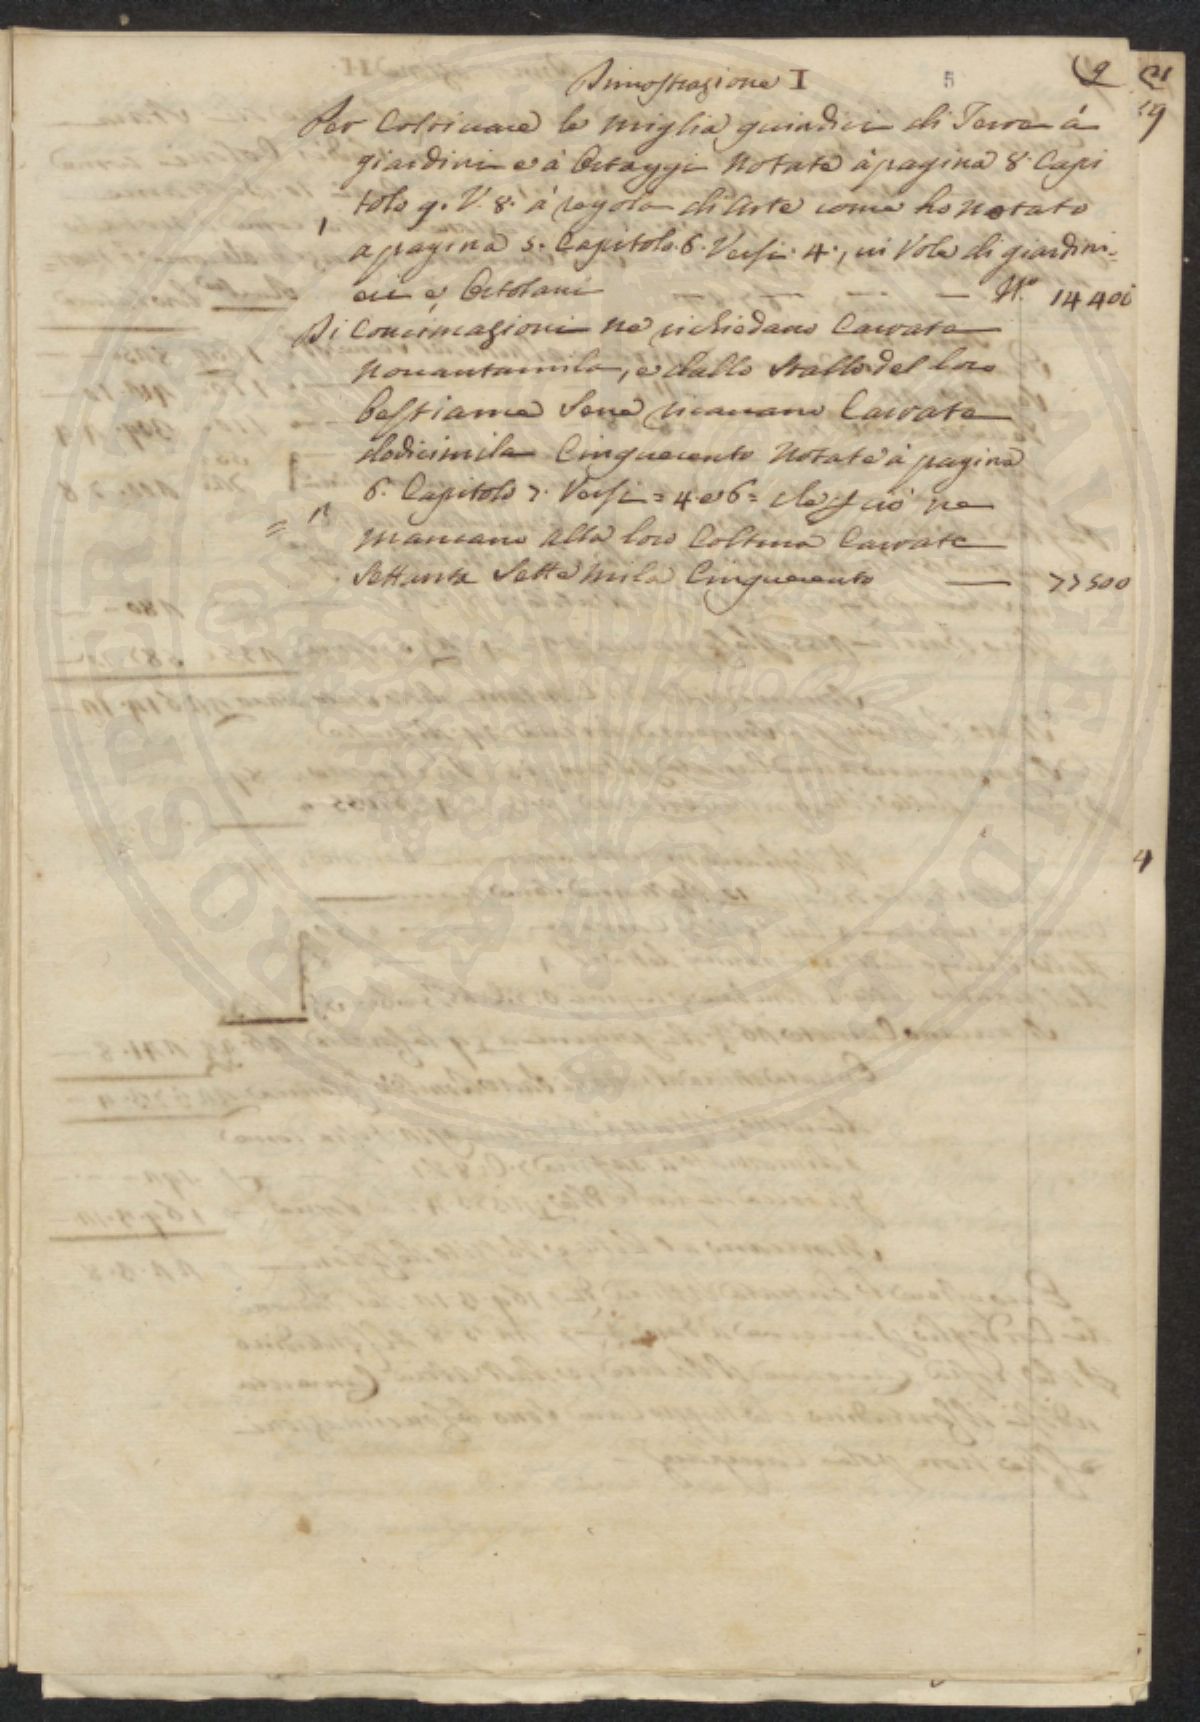 Dimostrazione I
5
9
Per Coltivare le miglia quindici di Terre à
giardini e à Ortaggi Notate à pagina 8. Capi
tolo 9. V. 8. à regola di arte come ho notato
1
a pagina 5. Capitolo. 6. Versi. 4., vi Vole di giardini=
eri e Ortolani — — — — N.º 14400
Di Concimazioni ne richiedano Carrate
Novantamila, e dallo Stallo del loro
bestiame Sene ricavano Carrate
dodicimila Cinquecento Notate à pagina
6. Capitolo 7. Versi = 4 e 6 = che perciò ne
= 2
mancano alla loro Coltura Carrate
Settanta Sette mila Cinquecento — 77500
19
4